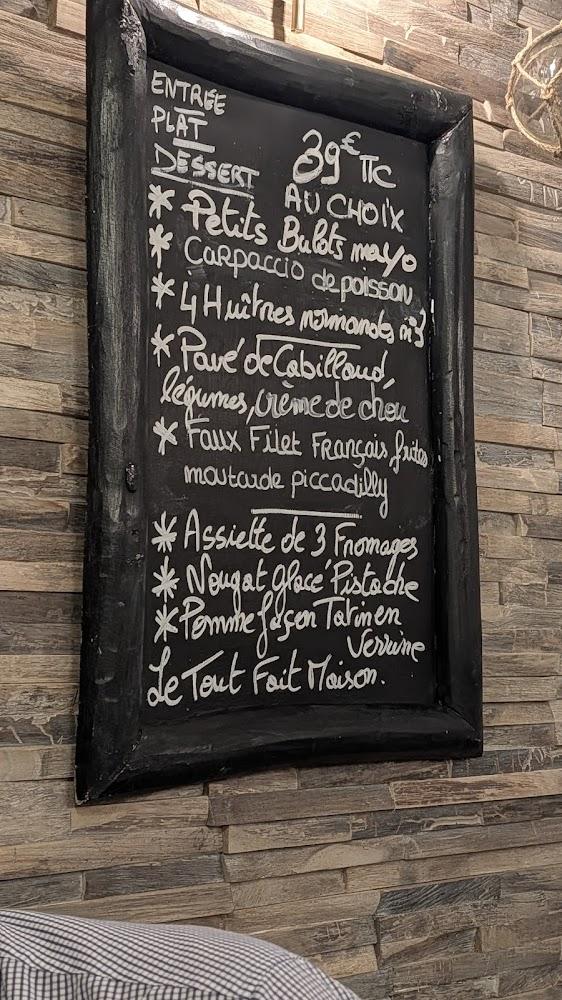 ENTRÉE
PLAT
DESSERT
39€ TTC
AU CHOIX
* Petits Bulots mayo
* Carpaccio de poisson
* 4 Huîtres normandes n°3
* Pavé de Cabillaud,
légumes, crème de chou
* Faux Filet Français, frites
moutarde piccadilly
* Assiette de 3 Fromages
* Nougat Glacé Pistache
* Pomme façon Tatin en
Verrine
Le Tout Fait Maison.